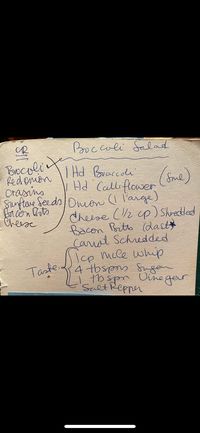 OR
Brocoli
Red Onion
Crasins
Sunflwr Seeds
Bacon Bits
Cheese
Broccoli Salad
1 Hd Broccoli
1 Hd Califlower (Sml)
Onion (1 large)
Cheese (1/2 cp) Shredded
Bacon Bitts (last)
Carrot Schredded
Taste
1 cp Mirle Whip
4 tbspns Sugar
1 tbspn Vinegar
Salt Pepper